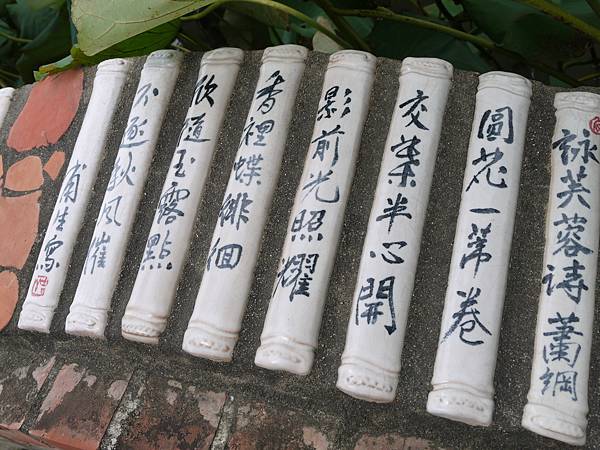 詠芙蓉詩 蕭綱
圓花一蒂卷
交葉半心開
影前光照耀
香裡蝶徘徊
欣隨玉露點
不逐秋風催
甫生寫